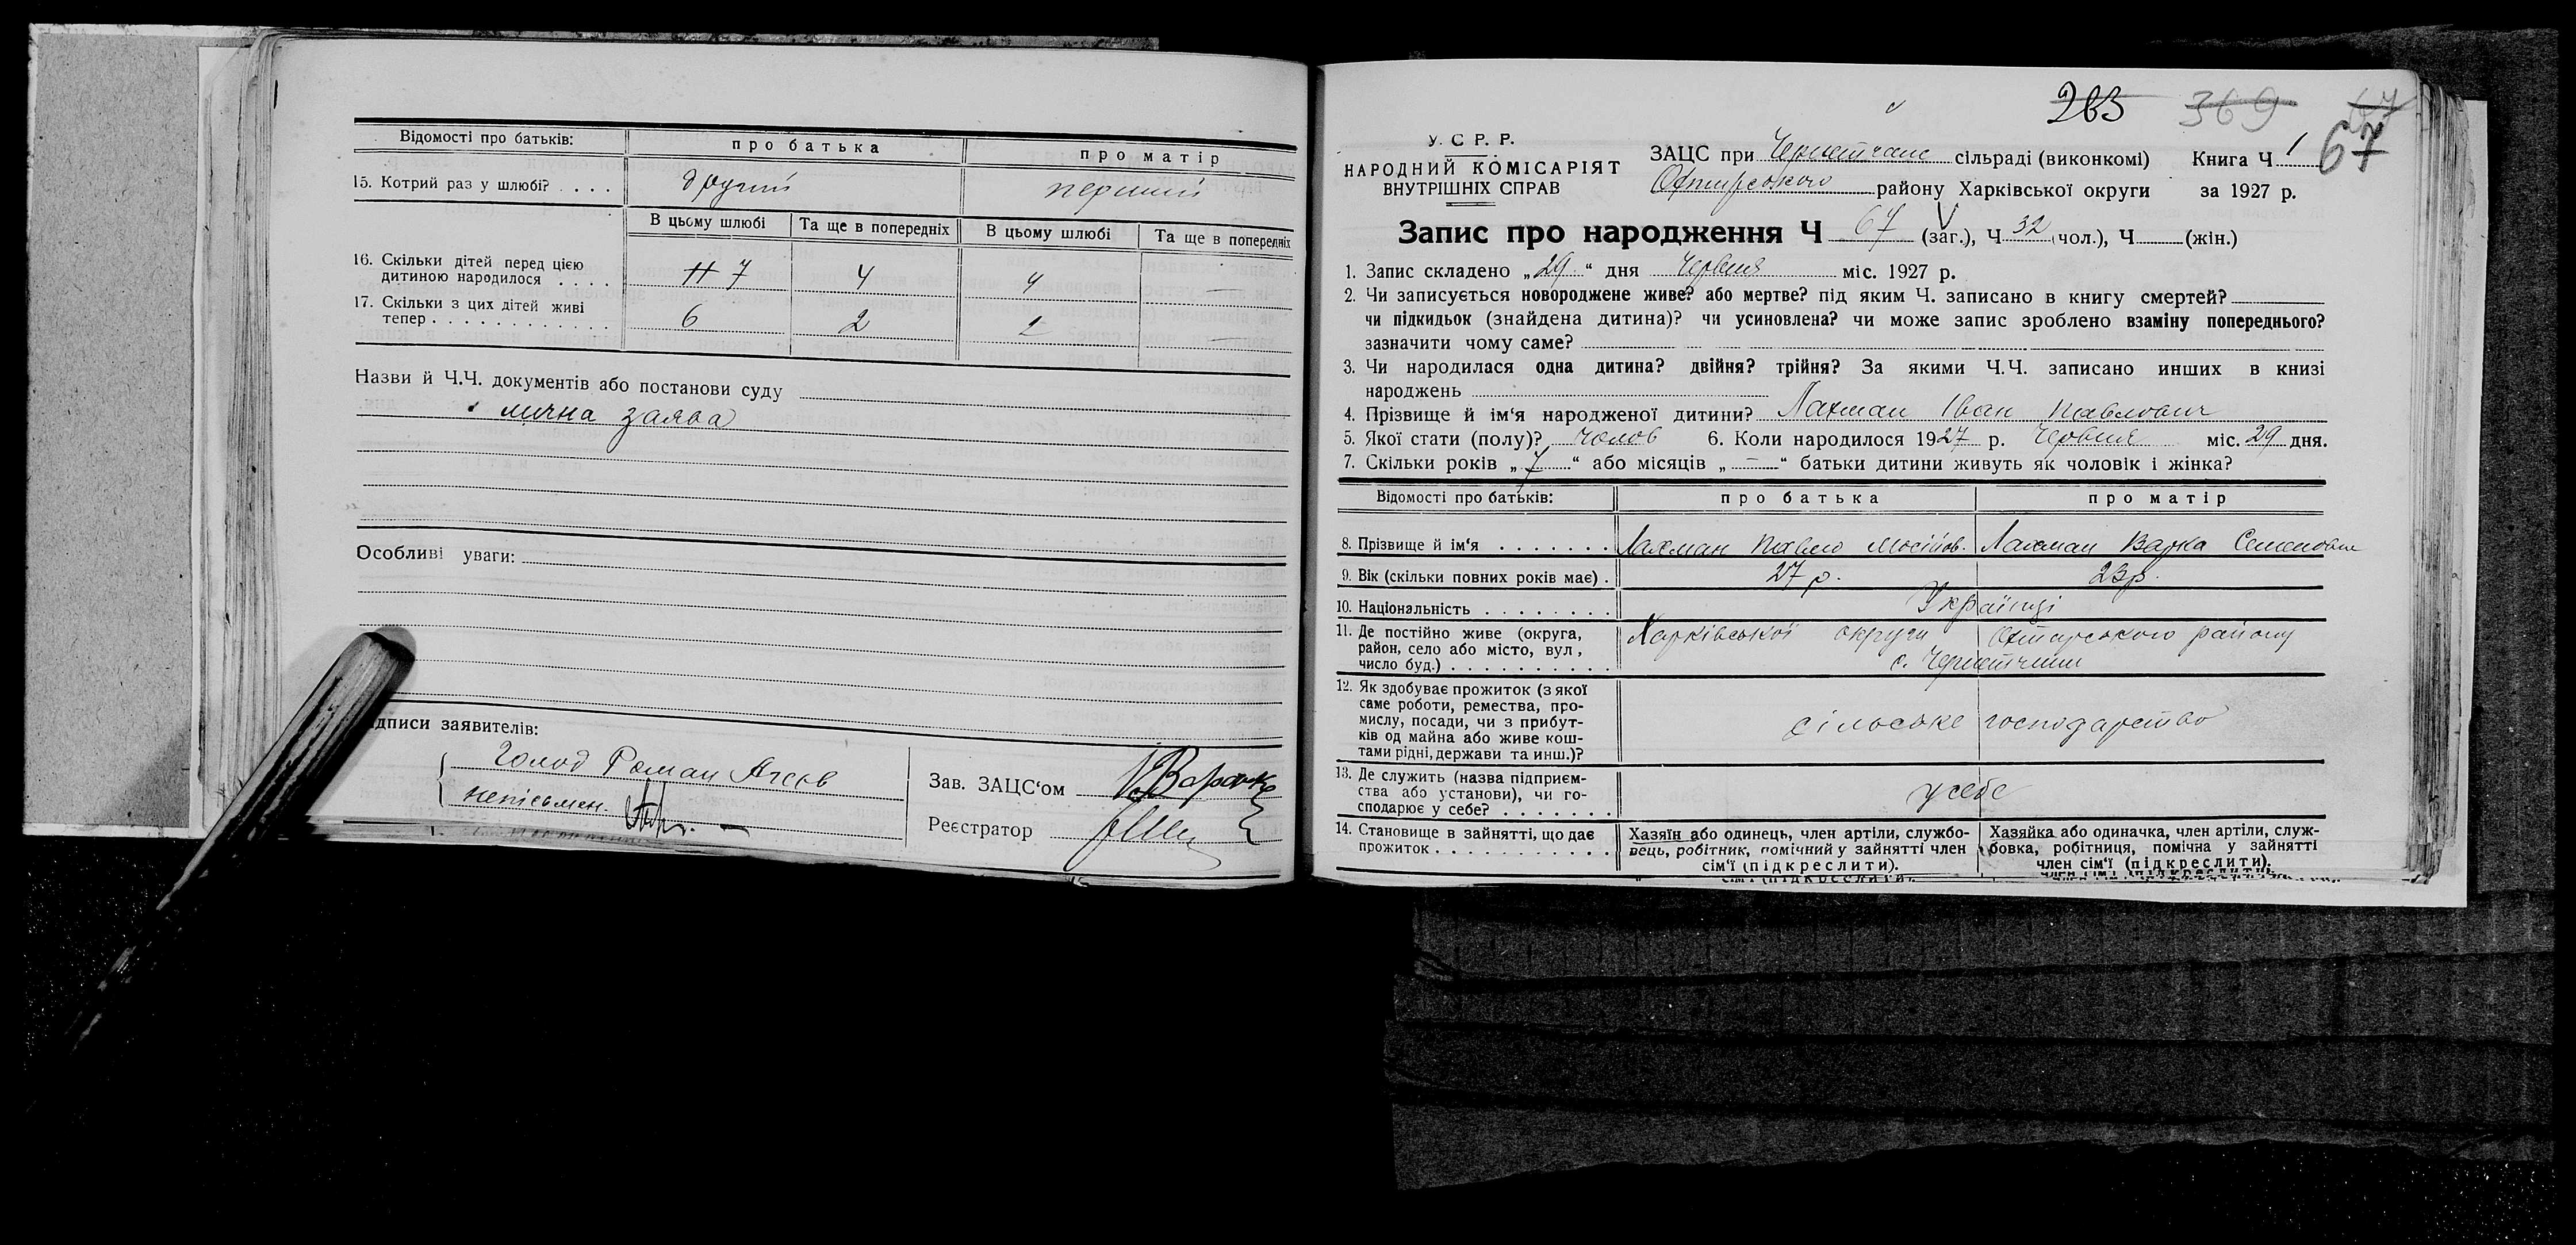 Відомості про батьків: про батька про матір
15. Котрий раз у шлюбі? . . . . другий перший
В цьому шлюбі Та ще в попередніх В цьому шлюбі Та ще в попередніх
16. Скільки дітей перед цією
дитиною народилося . . . . 7 4 4 —
17. Скільки з цих дітей живі
тепер . . . . . . . . . . . . . 6 2 2 —
Назви й Ч.Ч. документів або постанови суду
лична заява
Особливі уваги:
ідписи заявителів:
Голод Роман
неписьмен.
Зав. ЗАЦС‘ом
Реєстратор
263 369 67
У. С. Р. Р.
НАРОДНИЙ КОМІСАРІЯТ
ВНУТРІШНІХ СПРАВ
ЗАЦС при сільраді (виконкомі) Книга Ч 1 67
району Харківської округи за 1927 р.
Запис про народження Ч 67 (заг.), Ч 32 (чол.), Ч (жін.)
1. Запис складено „29“ дня Червня міс. 1927 р.
2. Чи записується новороджене живе? або мертве? під яким Ч. записано в книгу смертей?
чи підкидьок (знайдена дитина)? чи усиновлена? чи може запис зроблено взаміну попереднього?
зазначити чому саме?
3. Чи народилася одна дитина? двійня? трійня? За якими Ч.Ч. записано инших в книзі
народжень
4. Прізвище й ім‘я народженої дитини? Лахман Іван Павлович
5. Якої стати (полу)? Чолов 6. Коли народилося 1927 р. Червня міс. 29 дня.
7. Скільки років „7“ або місяців „—“ батьки дитини живуть як чоловік і жінка?
Відомості про батьків: про батька про матір
8. Прізвище й ім‘я . . . . . . . Лахман Павло Лахман Варка Семеновна
9. Вік (скільки повних років має) . 27 р. 23 р.
10. Національність . . . . . . . . Українці
11. Де постійно живе (округа,
район, село або місто, вул,
число буд.) . . . . . . . . . . . Харківської округи Охтирського району
с.
12. Як здобуває прожиток (з якої
саме роботи, ремества, про-
мислу, посади, чи з прибут-
ків од майна або живе кош-
тами рідні, держави та инш.)? сільське господарство
13. Де служить (назва підприєм-
ства або установи), чи го-
сподарює у себе? . . . . . . . у себе
14. Становище в зайнятті, що дає
прожиток . . . . . . . . . . .
Хазяїн або одинець, член артіли, службо-
вець, робітник, помічний у зайнятті член
сім‘ї (підкреслити).
Хазяйка або одиначка, член артіли, служ-
бовка, робітниця, помічна у зайнятті
член сім‘ї (підкреслити).